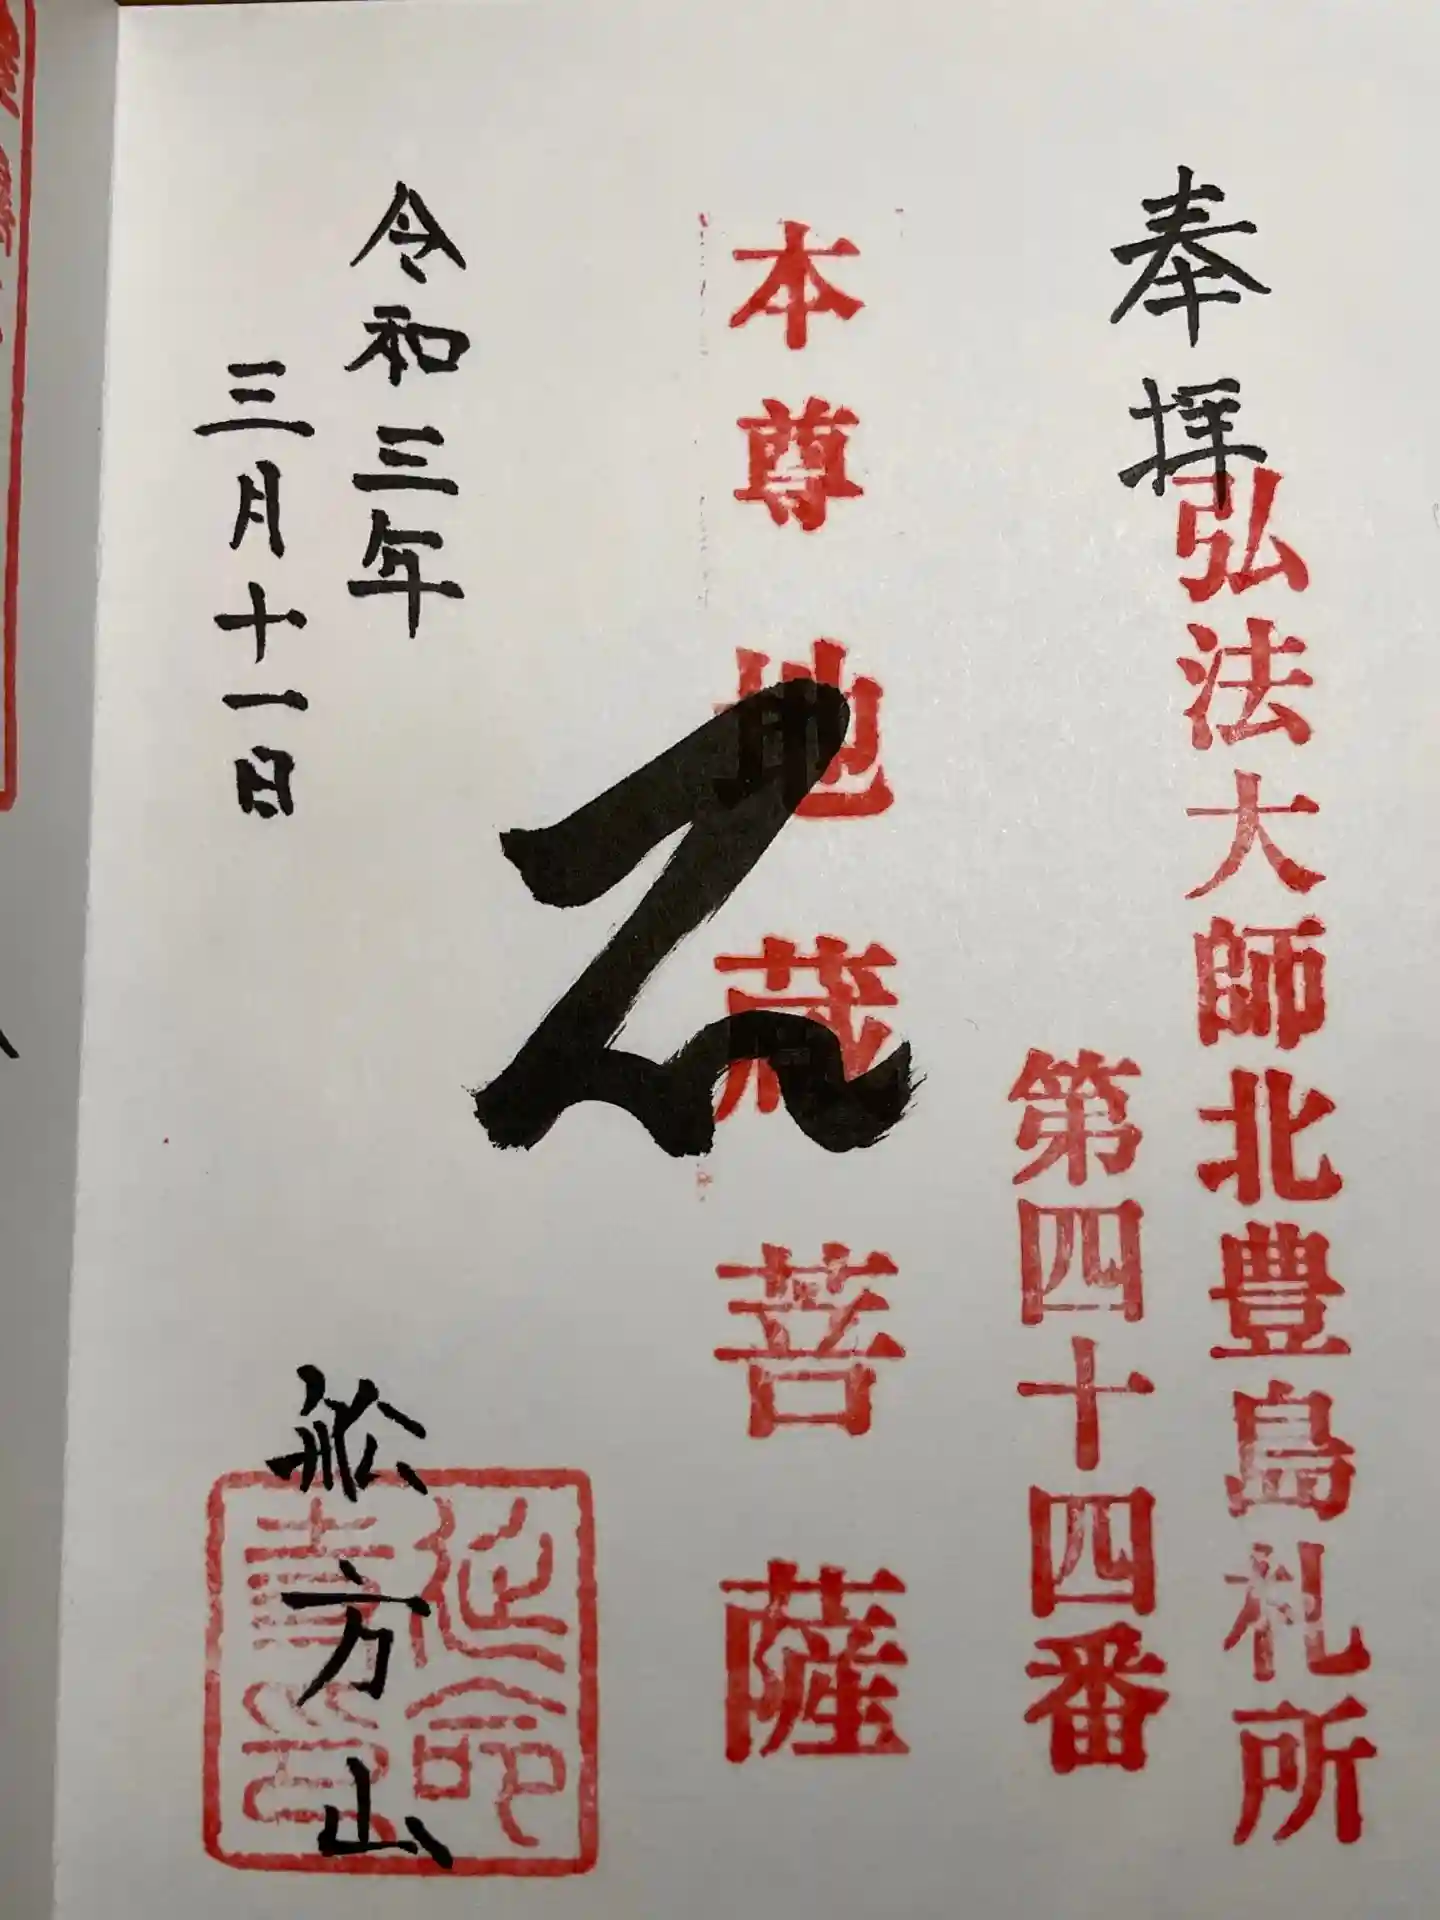 奉拝
弘法大師北豊島札所
第四十四番
本尊地蔵菩薩
令和三年
三月十一日
舩方山
延命